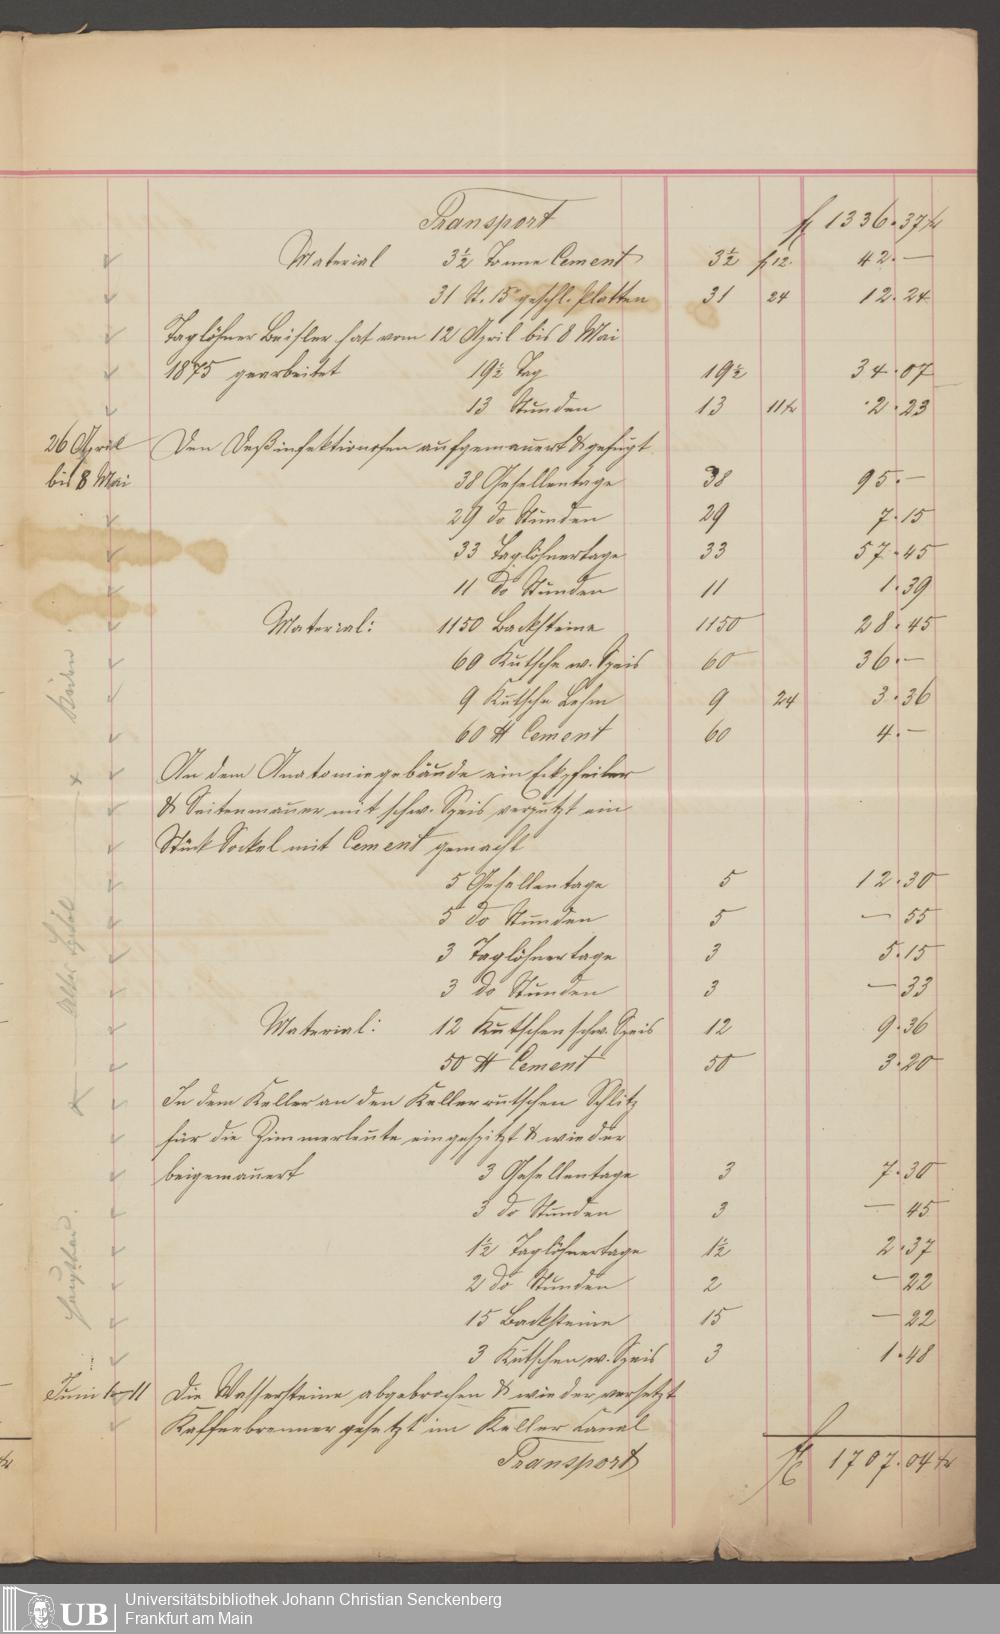 Transport fl 1336.37 kr
Material 3½ Tonne Cement 3½ fl 12. 42.—
31 St. 15" geschl. Platten 31 24 12.24
Taglöhner Beisler hat vom 12 April bis 8 Mai
1875 gearbeitet 19½ Tag 19½ 34.07
13 Stunden 13 11 kr 2.23
26 April Den Deßinfektionsofen aufgemauert & gefugt
bis 8 Mai 38 Gesellentage 38 95.—
29 do Stunden 29 7.15
33 Taglöhnertage 33 57.45
11 do Stunden 11 1.39
Material: 1150 Backsteine 1150 28.45
60 Kutsche w. Speis 60 36.—
9 Kutsche Lehm 9 24 3.36
60 ℔ Cement 60 4.—
An dem Anatomiegebäude ein Eckpfeiler
& Seitenmauer mit schw. Speis verputzt ein
Stück Sockel mit Cement gemacht
5 Gesellentage 5 12.30
5 do Stunden 5 — 55
3 Taglöhnertage 3 5.15
3 do Stunden 3 — 33
Material: 12 Kutschen schw. Speis 12 9.36
50 ℔ Cement 50 3.20
In dem Keller an den Kellerrutschen Schlitz
für die Zimmerleute eingespitzt & wieder
beigemauert 3 Gesellentage 3 7.30
3 do Stunden 3 — 45
1½ Taglöhnertage 1½ 2.37
2 do Stunden 2 — 22
15 Backsteine 15 — 22
3 Kutschen w. Speis 3 1.48
Juni 10-11 Die Wassersteine abgebrochen & wieder versetzt
Kaffeebrenner gesetzt im Keller Canal
Transport fl 1707.04 kr
UB
Universitätsbibliothek Johann Christian Senckenberg
Frankfurt am Main